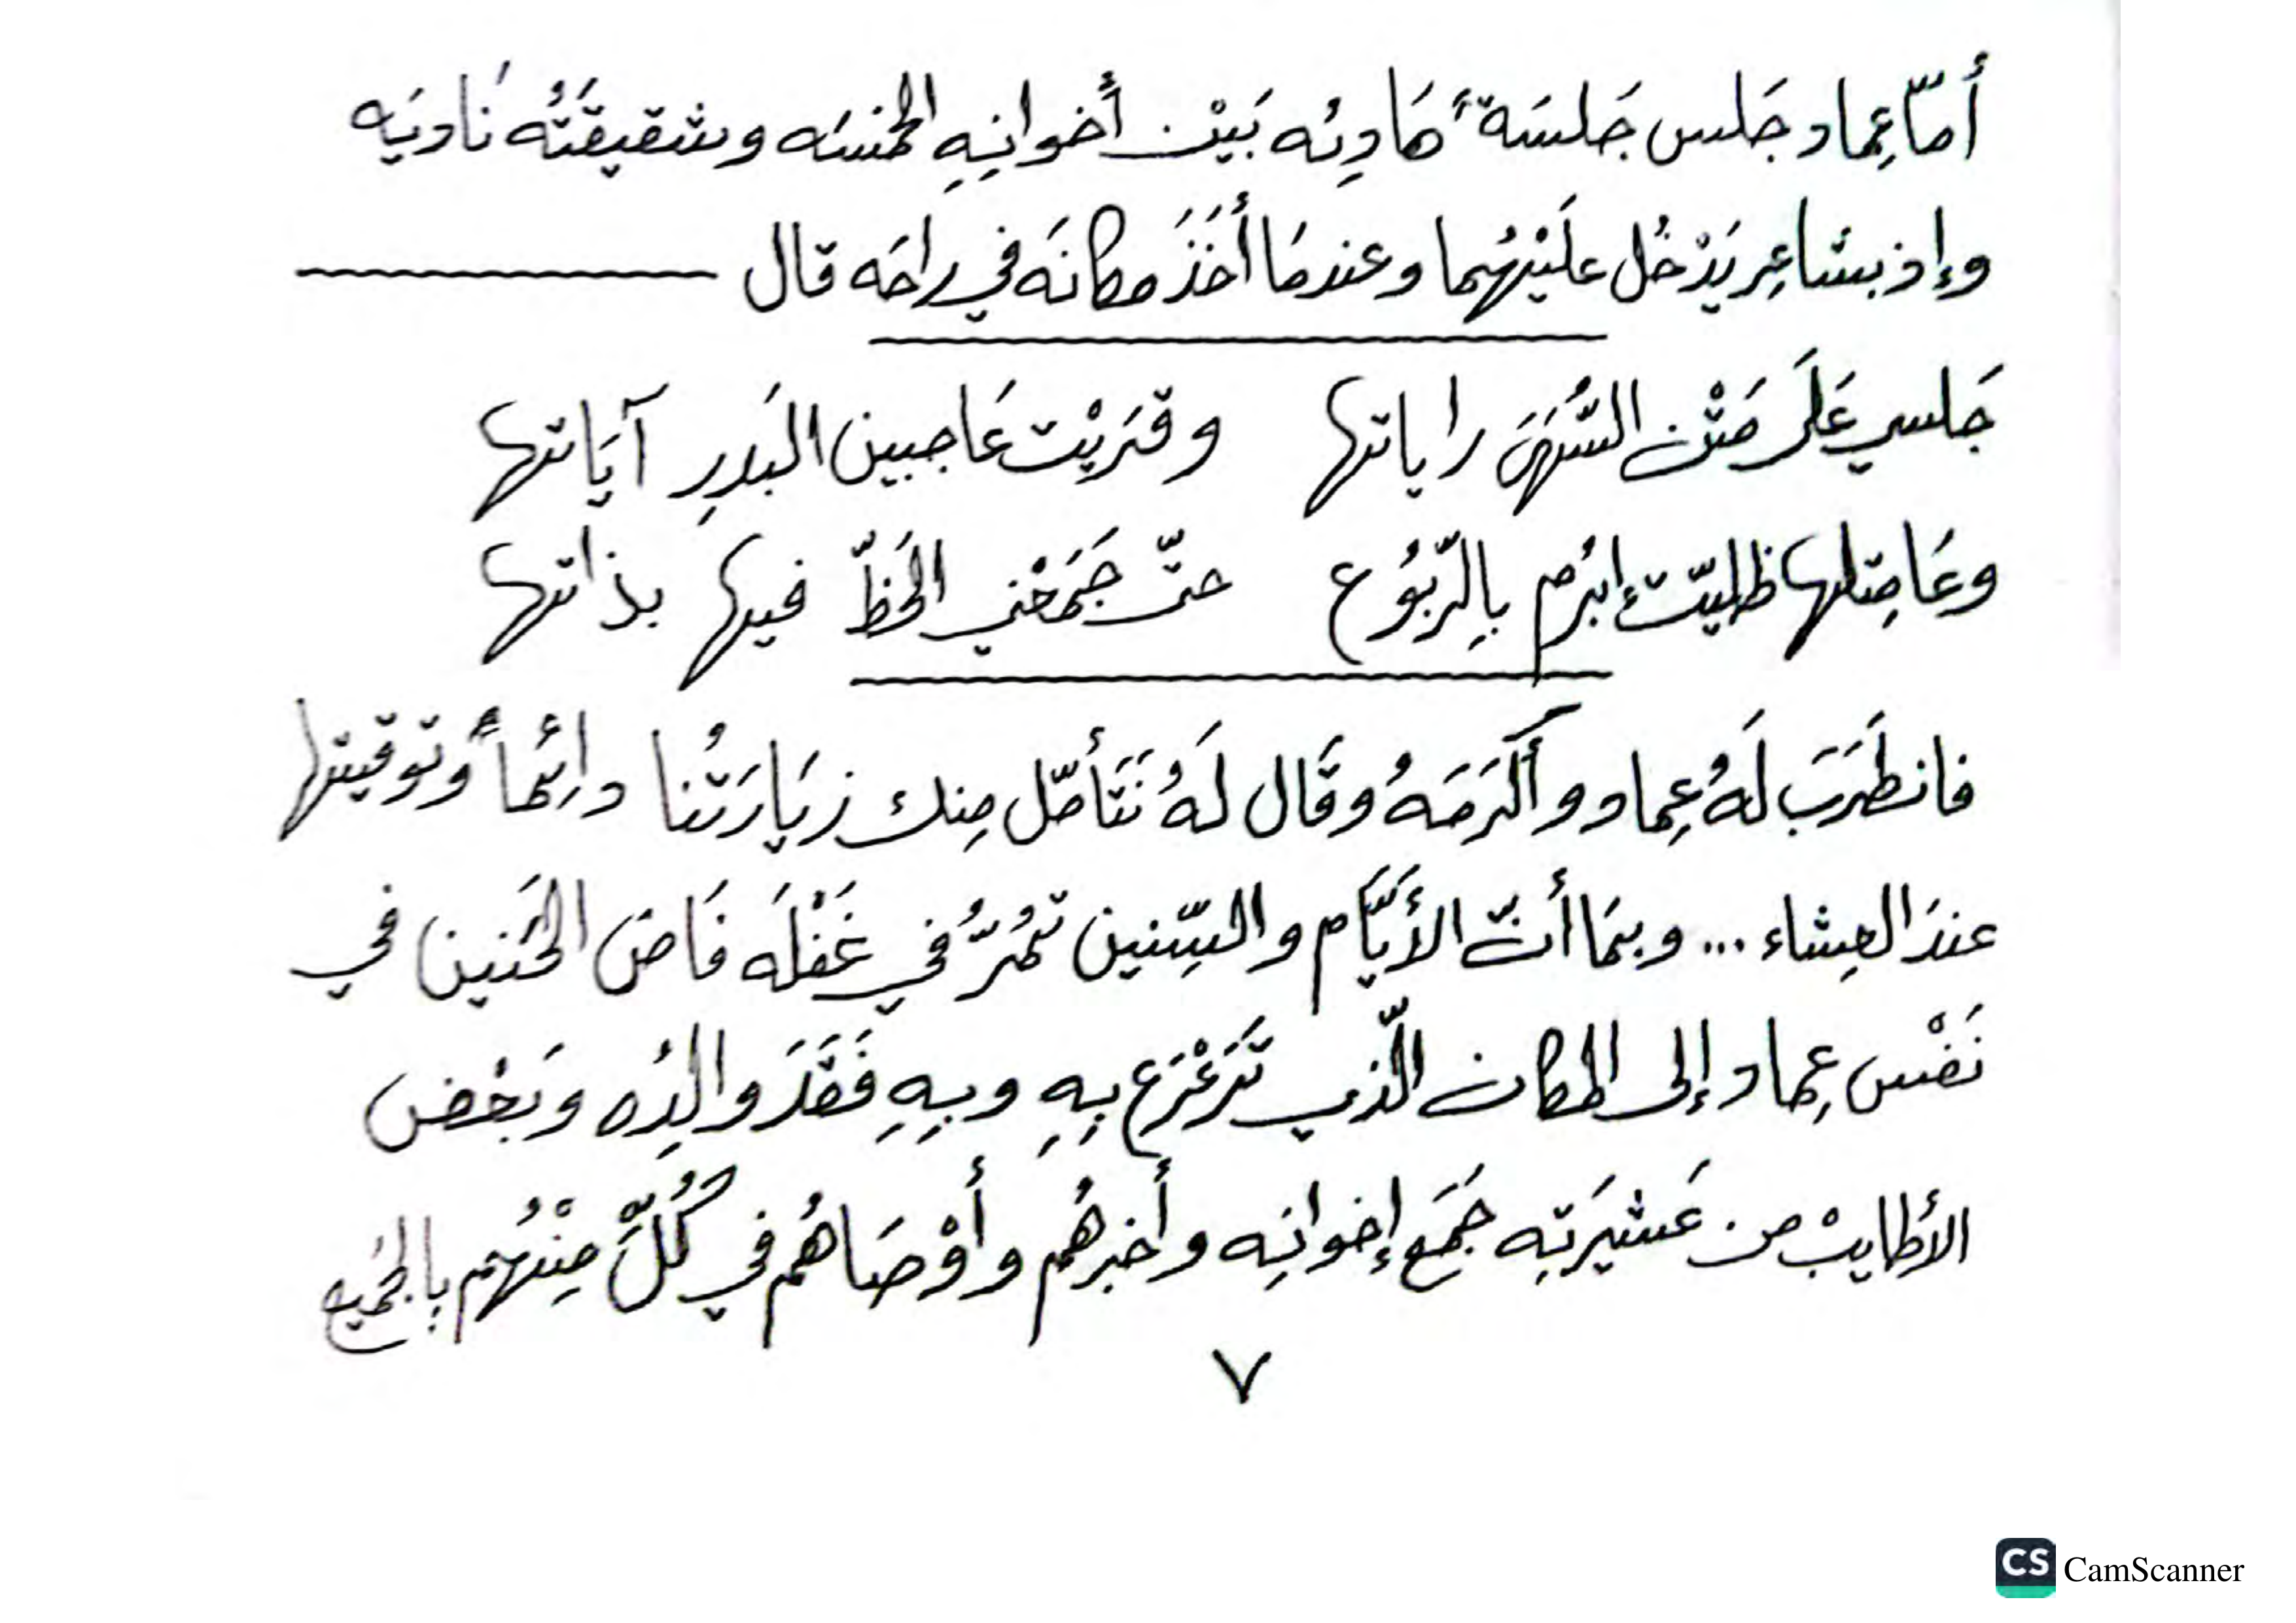 أمّا عِماد جَلس جَلسَةً هَادِئه بَيْن أخوانِهِ الخمسَه وشقيقَتُه نَاديَه
وإذ بشاعِر يَدْخُل علَيْهُما وعندمَا أخَذَ مكانَه في راحَه قال
جَلسي عَلَى مَتْن السُّهَى راياتها وقرَيْت عَا جبين البَدرِ آيَاتها
وعَا مِتلها ظليّت ابْرُم بِالرّبُوُع حتّى جَمَعْني الحَظّ فيها بذاتها
فانطَرَبَ لَهُ عِماد وأكْرَمَهُ وقَال لَهُ نَتَأمّل مِنك زيَارَتُنا دائِماً وتوقيتها
عندَ العِشاء ... وبمَا أنّ الأيَّام والسِّنين تمُرُّ في غَفْلَه فَاضَ الحَنين في
نَفْس عِماد إلى المكان الّذي تَرَعْرَع بِهِ وبِهِ فَقَدَ والِدُه وبَعْض
الأطايبْ من عَشيرَتِه جَمَع إخوانِه وأخبرهُم وأوْصَاهُم في كُلٍّ مِنْهُم بالجَميع
٧
CS CamScanner